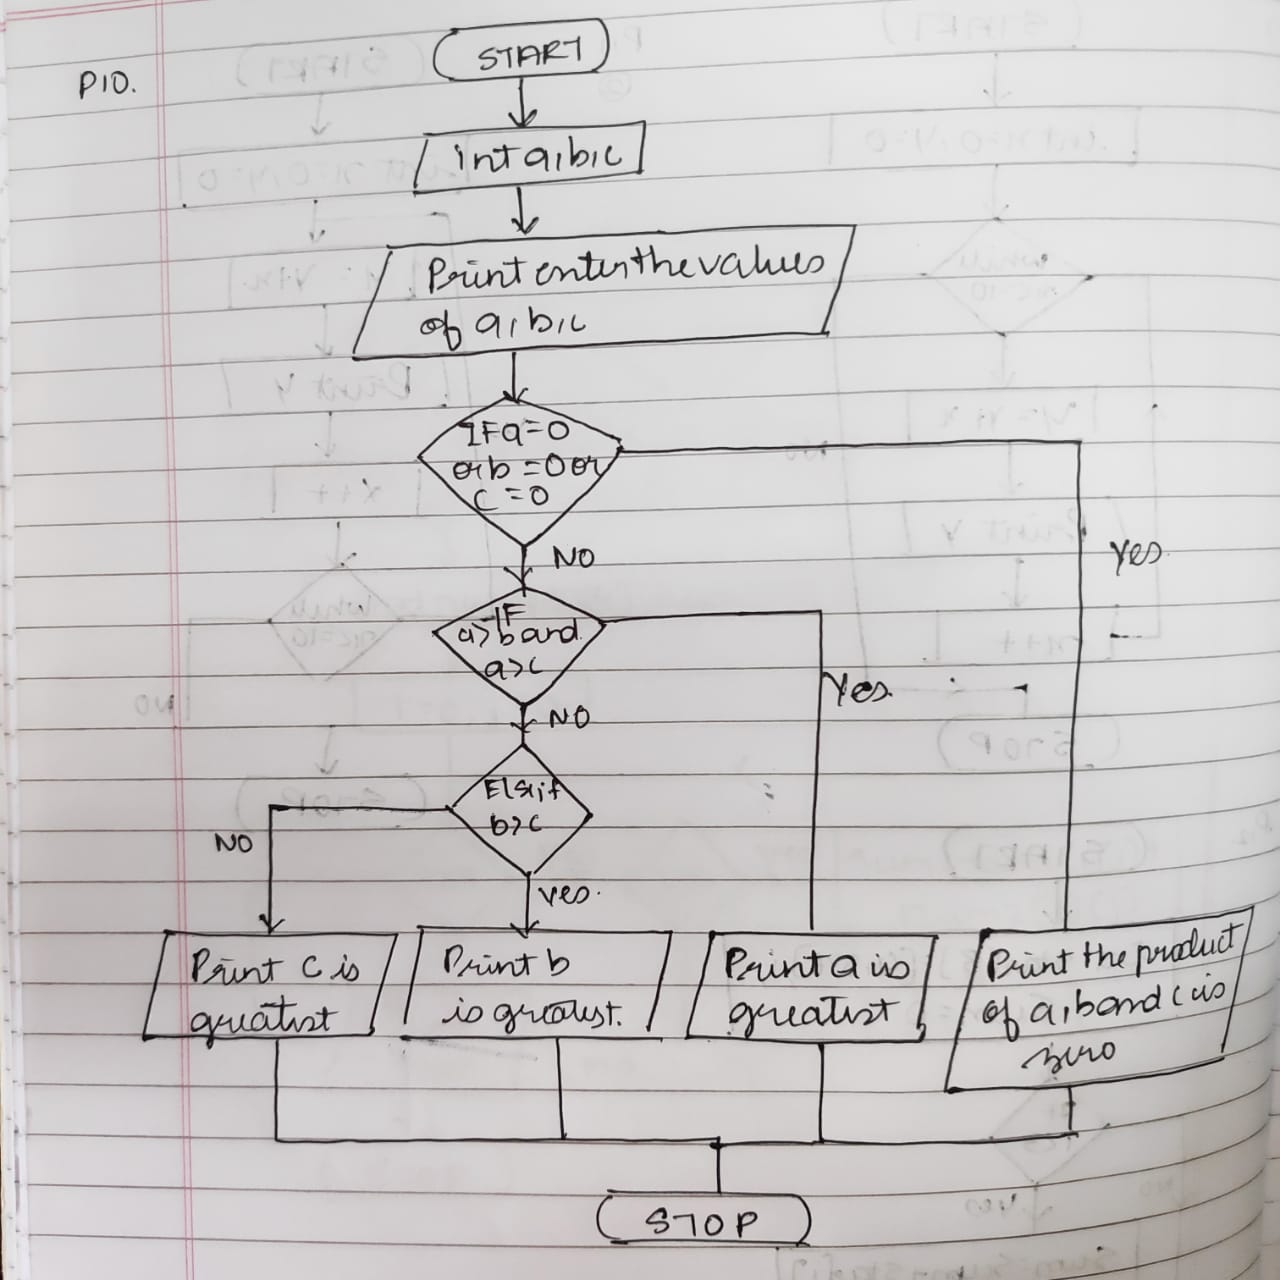 P10.
START
int a,b,c
Print enter the values
of a,b,c
IF a=0
or b =0 or
c =0
Yes
NO
IF
a>b and
a>c
Yes.
NO
Elseif
b>c
NO
yes.
Print c is
greatest
Print b
is greatest.
Print a is
greatest
Print the product
of a,b and c is
zero
STOP